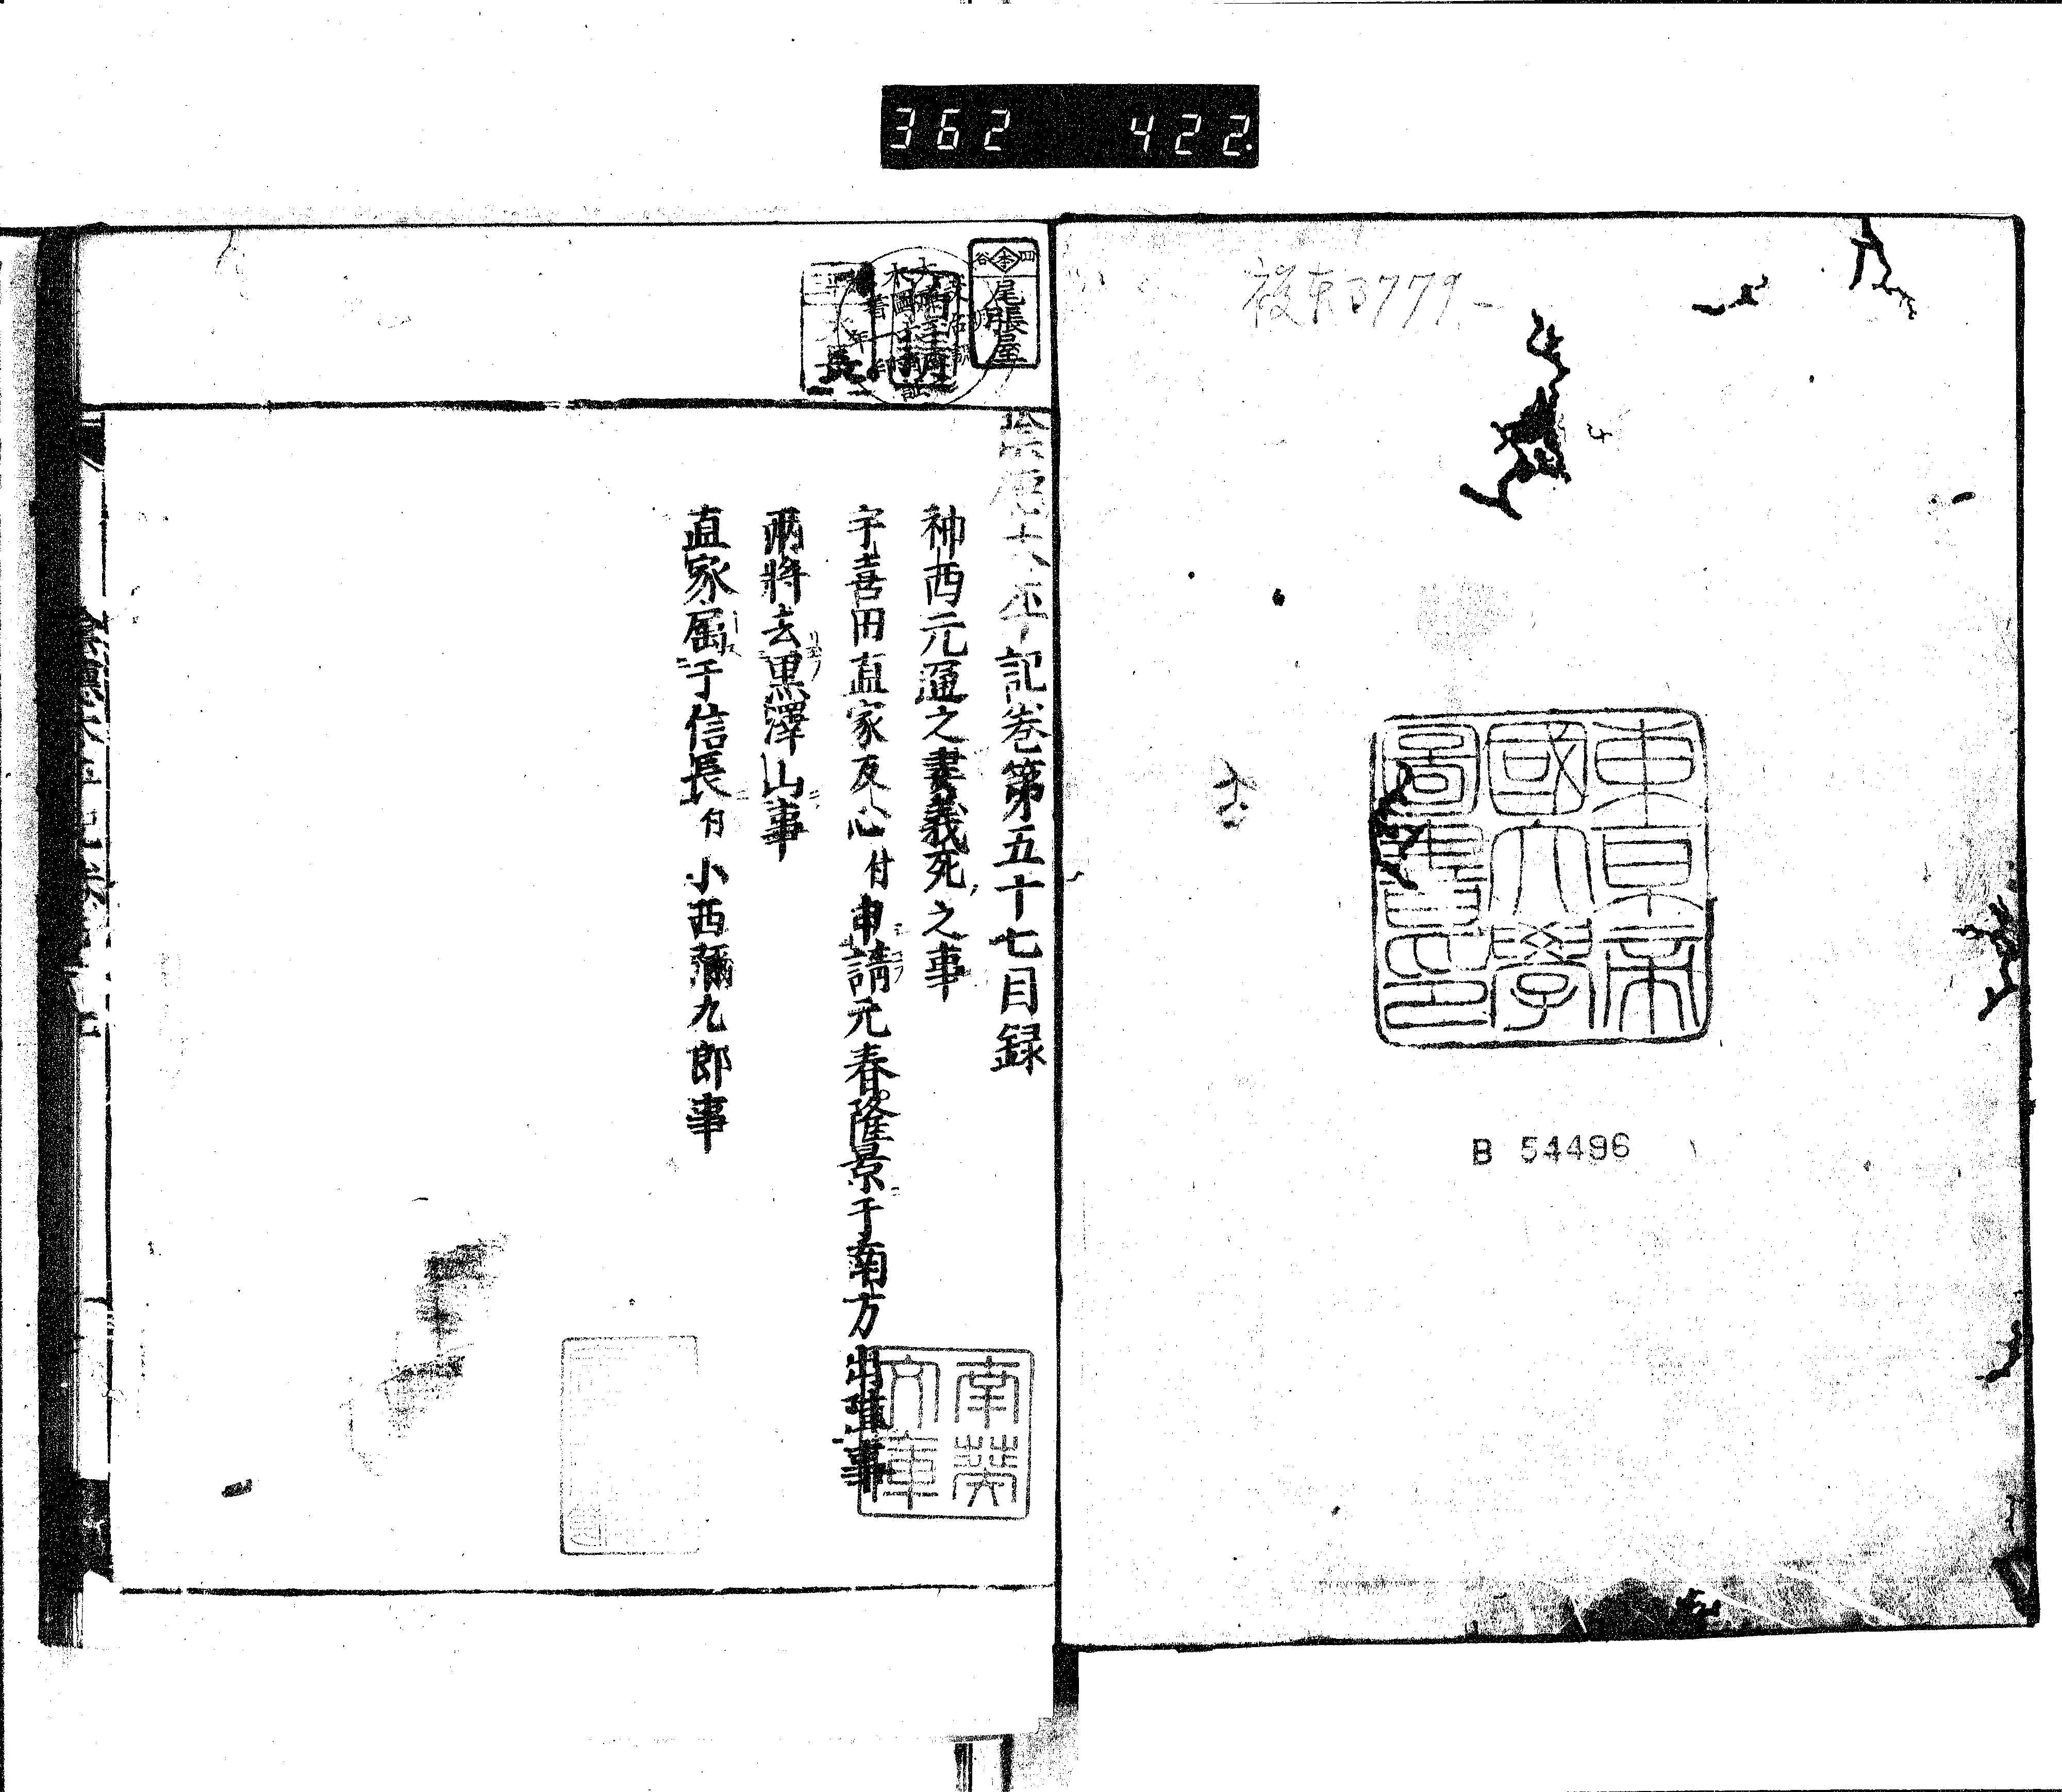 362 422
複東B779
東京帝
國大學
圖書印
B 54496
四谷
尾張屋
陰德太平記卷第五十七目録
神西元通之妻義死之事
宇喜田直家反心付申請元春隆景于南方出張事
兩將去黒澤山事
直家屬于信長付小西彌九郎事
南葵
文庫